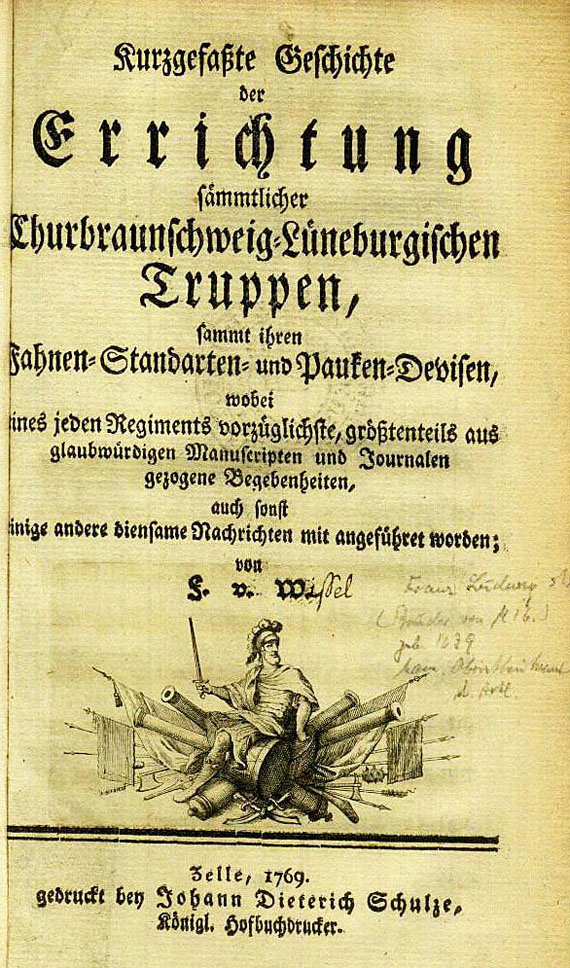 Kurzgefaßte Geschichte
der
Errichtung
sämmtlicher
Churbraunschweig-Lüneburgischen
Truppen,
sammt ihren
Fahnen-Standarten- und Pauken-Devisen,
wobei
eines jeden Regiments vorzüglichste, größtenteils aus
glaubwürdigen Manuscripten und Journalen
gezogene Begebenheiten,
auch sonst
einige andere diensame Nachrichten mit angeführet worden;
von
F. v. Wissel
Franz Ludwig
(Bruder von
geb.
Zelle, 1769.
gedruckt bey Johann Dieterich Schulze,
Königl. Hofbuchdrucker.